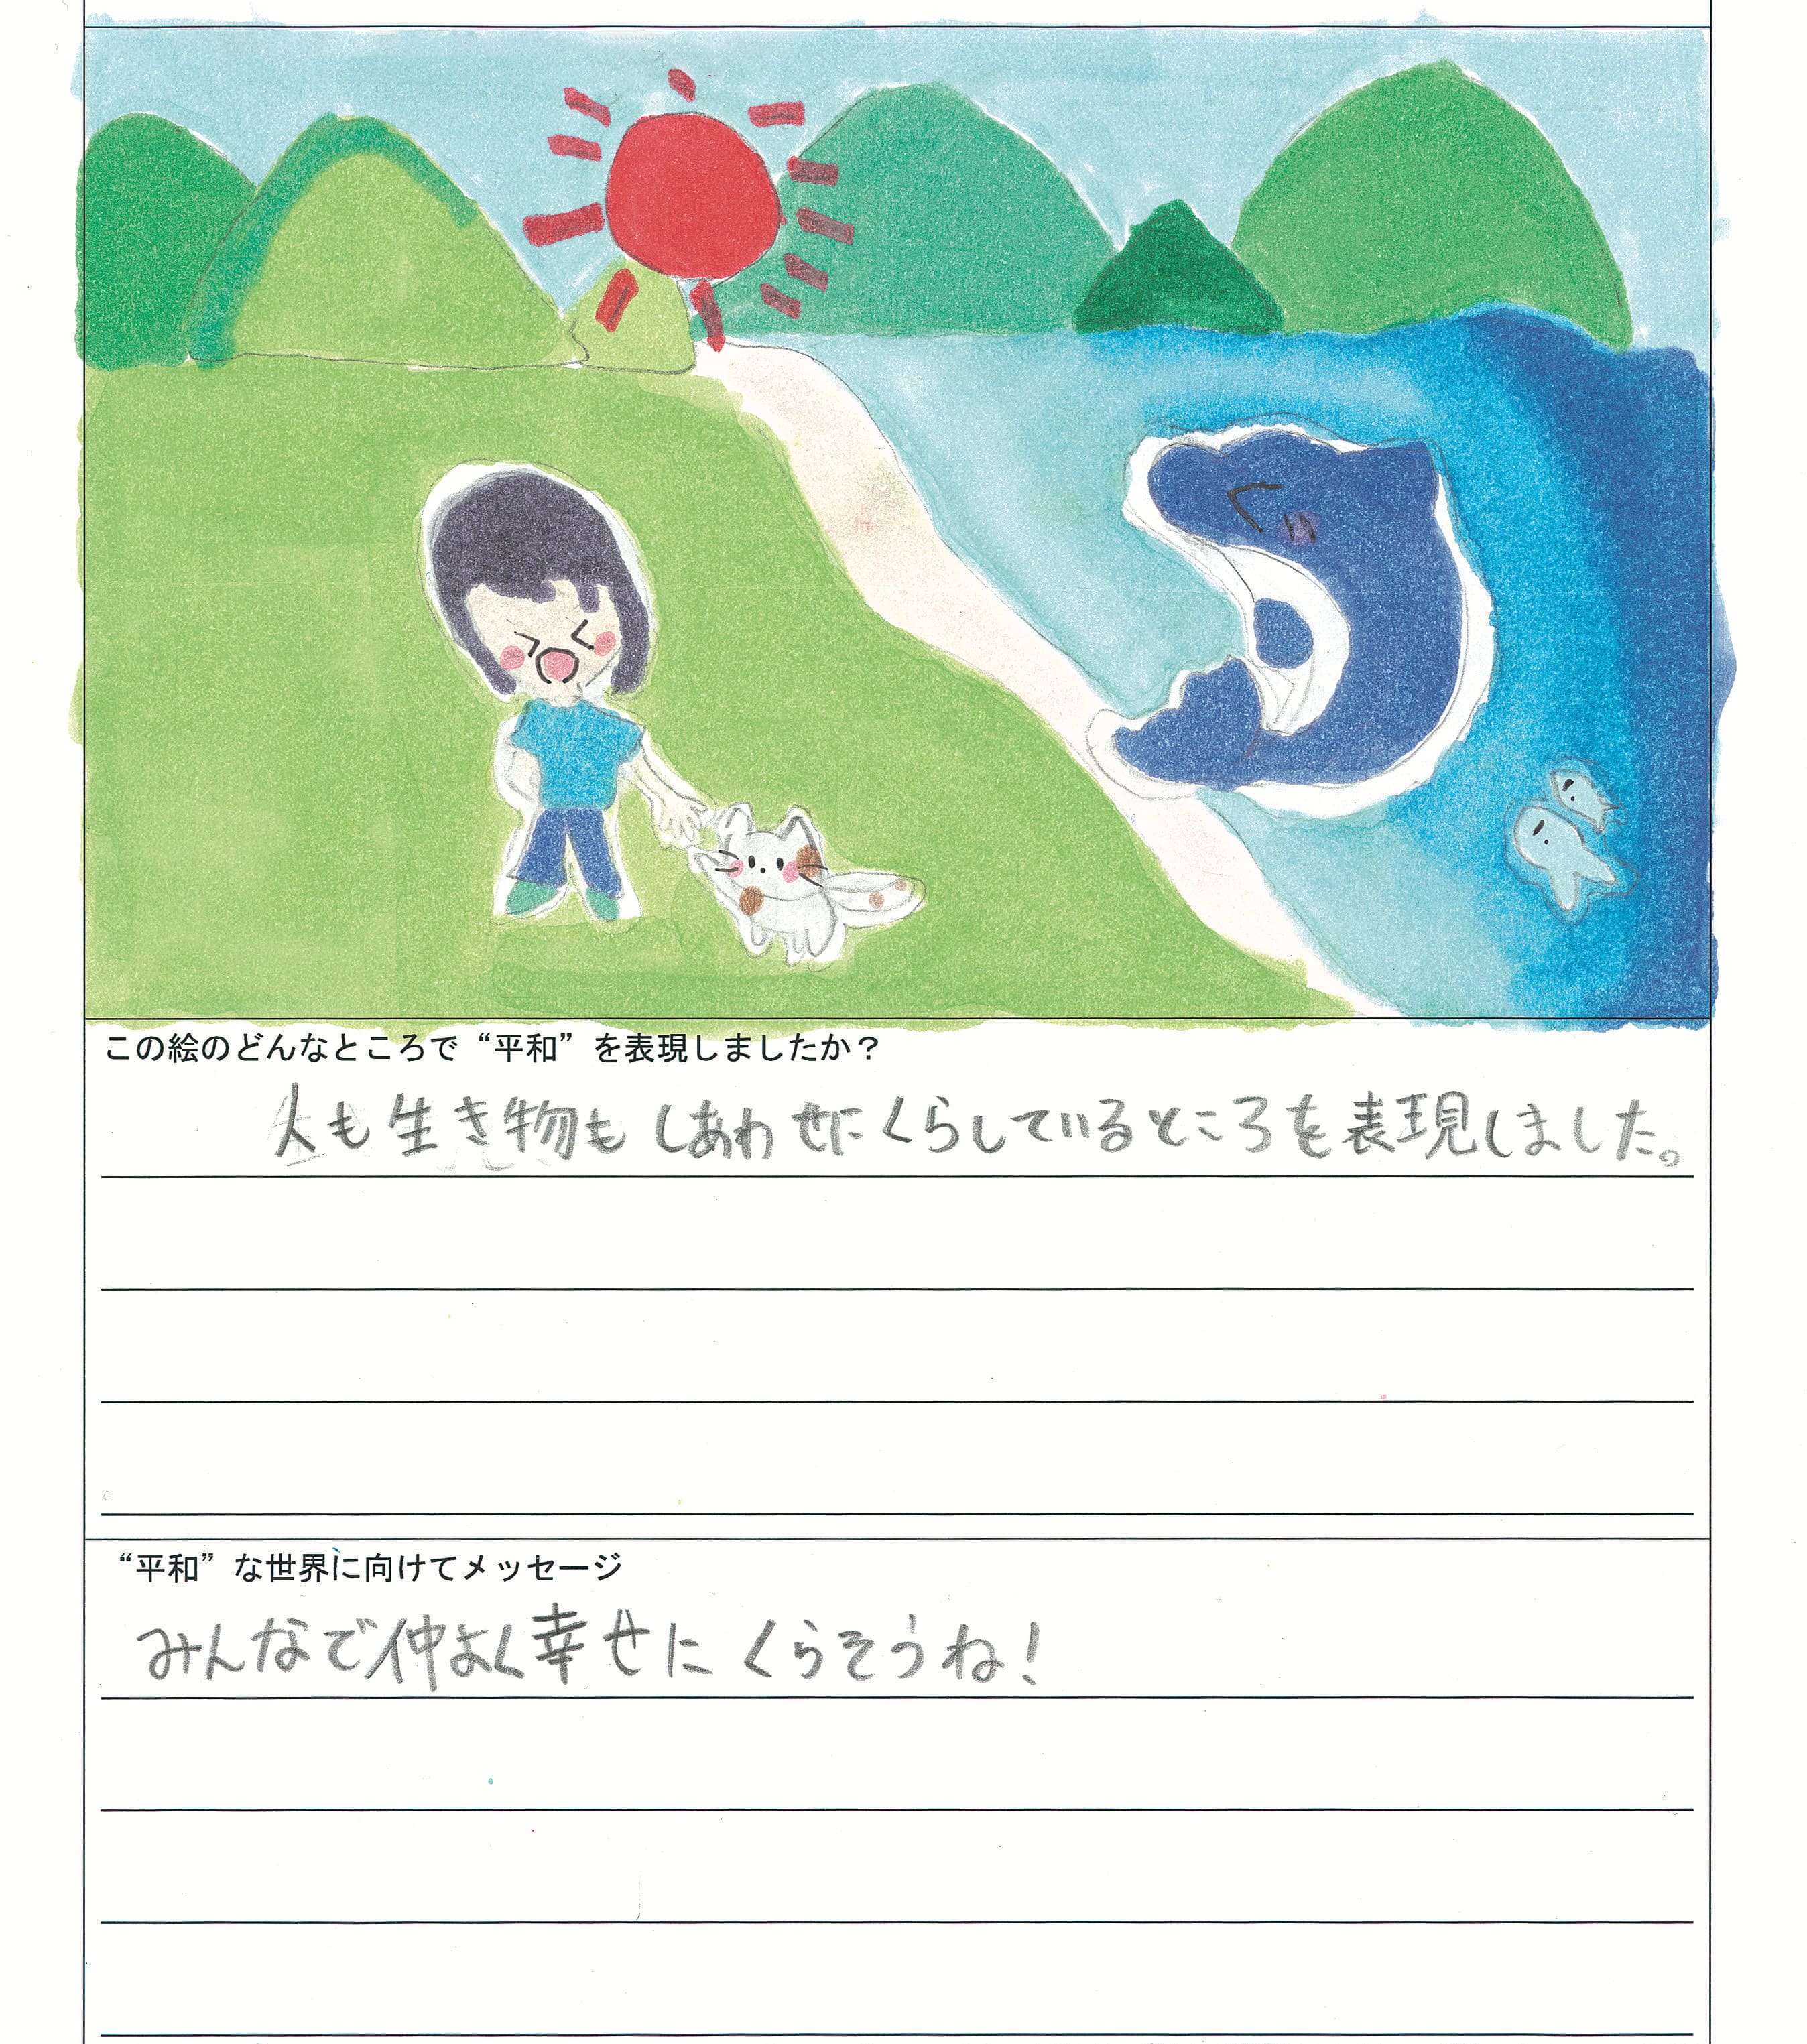 この絵のどんなところで“平和”を表現しましたか？
人も生き物もしあわせにくらしているところを表現しました。
“平和”な世界に向けてメッセージ
みんなで仲よく幸せにくらそうね！